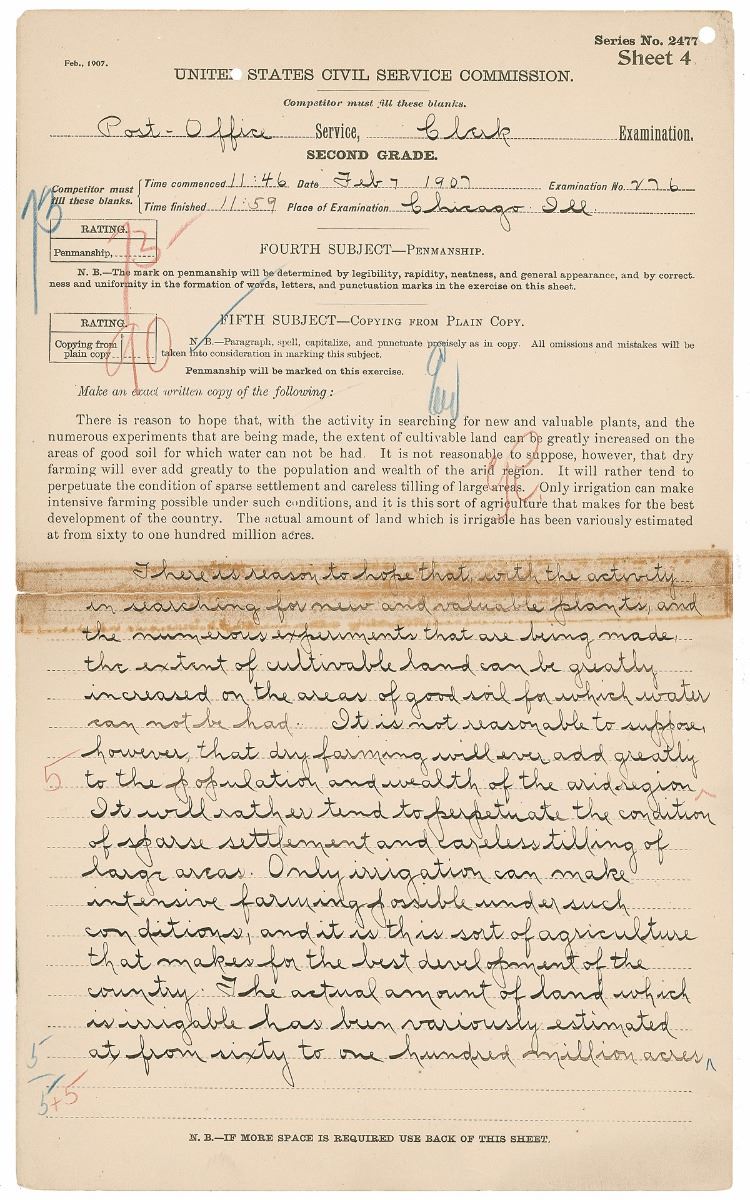 Series No. 2477
Sheet 4
Feb., 1907.
UNITED STATES CIVIL SERVICE COMMISSION.
Competitor must fill these blanks.
Post-Office Service, Clerk Examination.
SECOND GRADE.
Competitor must fill these blanks.
Time commenced 11:46 Date Feb 7 1907 Examination No. 276
Time finished 11:59 Place of Examination Chicago Ill.
73
RATING.
Penmanship, 73
FOURTH SUBJECT—PENMANSHIP.
N. B.—The mark on penmanship will be determined by legibility, rapidity, neatness, and general appearance, and by correct-
ness and uniformity in the formation of words, letters, and punctuation marks in the exercise on this sheet.
RATING.
Copying from plain copy 90
FIFTH SUBJECT—COPYING FROM PLAIN COPY.
N. B.—Paragraph, spell, capitalize, and punctuate precisely as in copy. All omissions and mistakes will be
taken into consideration in marking this subject.
Penmanship will be marked on this exercise.
Make an exact written copy of the following:
There is reason to hope that, with the activity in searching for new and valuable plants, and the
numerous experiments that are being made, the extent of cultivable land can be greatly increased on the
areas of good soil for which water can not be had. It is not reasonable to suppose, however, that dry
farming will ever add greatly to the population and wealth of the arid region. It will rather tend to
perpetuate the condition of sparse settlement and careless tilling of large areas. Only irrigation can make
intensive farming possible under such conditions, and it is this sort of agriculture that makes for the best
development of the country. The actual amount of land which is irrigable has been variously estimated
at from sixty to one hundred million acres.
There is reason to hope that, with the activity
in searching for new and valuable plants, and
the numerous experiments that are being made,
the extent of cultivable land can be greatly
increased on the areas of good soil for which water
can not be had. It is not reasonable to suppose,
however, that dry farming will ever add greatly
5
to the population and wealth of the arid region
It will rather tend to perpetuate the condition
of sparse settlement and careless tilling of
large areas. Only irrigation can make
intensive farming possible under such
conditions, and it is this sort of agriculture
that makes for the best development of the
country. The actual amount of land which
is irrigable has been variously estimated
at from sixty to one hundred million acres
5
5+5
N. B.—IF MORE SPACE IS REQUIRED USE BACK OF THIS SHEET.